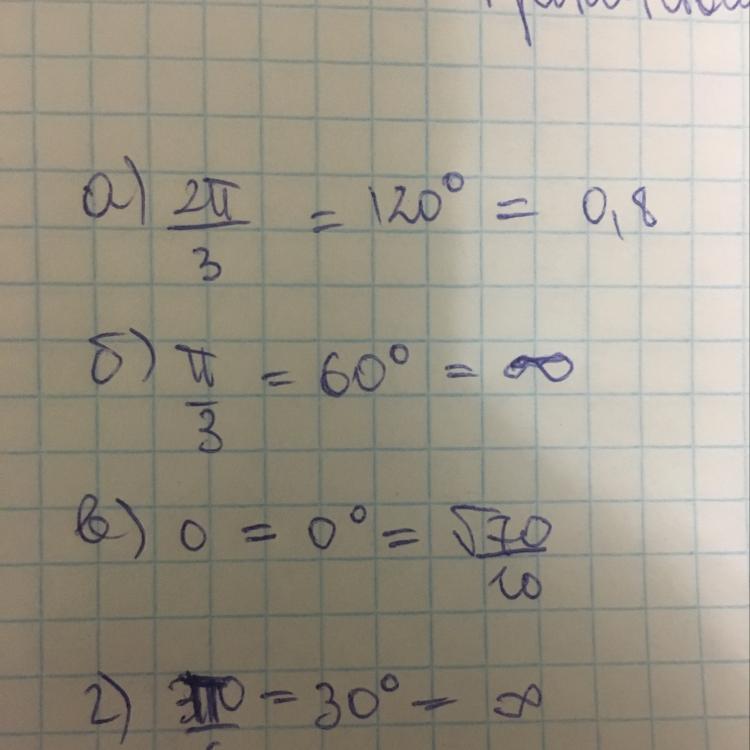 а) 2π/3 = 120° = 0,8
б) π/3 = 60° = ∞
в) 0 = 0° = √70/10
г) = 30° = ∞